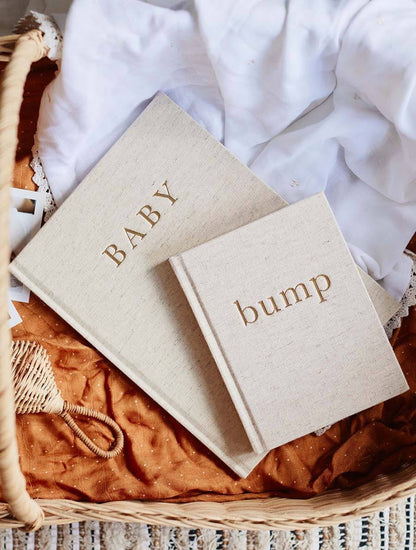 BABY
bump